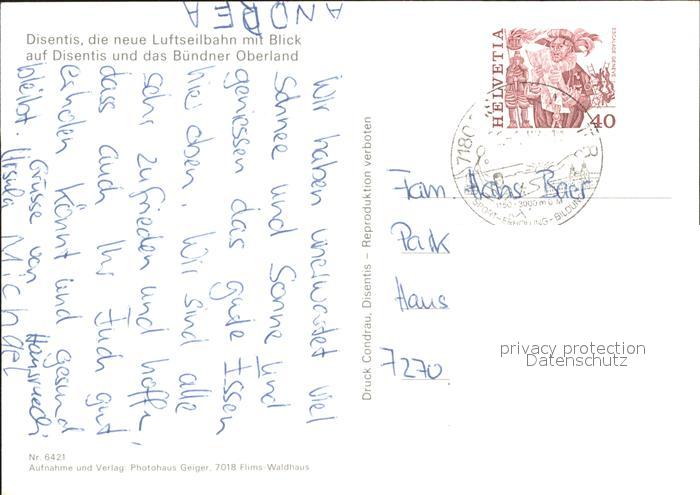 ANDREA
Disentis, die neue Luftseilbahn mit Blick
auf Disentis und das Bündner Oberland
Wir haben unerwartet viel
Schnee und Sonne und
geniessen das gute Essen
hier oben. Wir sind alle
sehr zufrieden und hoffen,
dass auch Ihr Euch gut
erholen könnt und gesund
bleibt. Grüsse von Hansruedi
Ursula Michael
Nr. 6421
Aufnahme und Verlag: Photohaus Geiger, 7018 Flims-Waldhaus
Druck Condrau, Disentis – Reproduktion verboten
HELVETIA
ESCALADE GENÈVE
40
7180
SPORT-ERHOLUNG-BILDUNG
Fam. Baer
Park
Haus
7270
privacy protection
Datenschutz